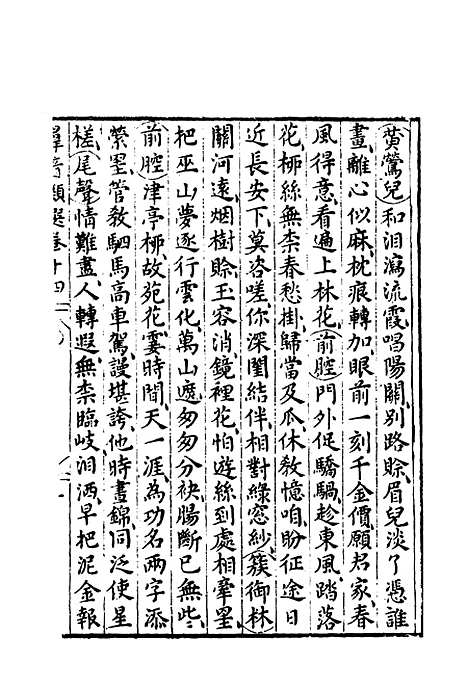 黄鶯兒和泪瀉流霞唱陽關别路賖眉兒淡了憑誰
畫離心似麻枕痕轉加眼前一刻千金價願君家春
風得意看遍上林花前腔門外促驕騧趁東風踏落
花栁絲無柰春愁掛歸當及瓜休敎憶咱盼征途日
近長安下莫咨嗟你深閨結伴相對綠窓紗簇御林
關河遠烟樹賖玉容消鏡裡花怕遊絲到處相牽罣
把巫山夢逐行雲化萬山遮匆匆分袂腸斷已無些
前腔津亭栁故苑花霎時間天一涯為功名兩字添
縈罣管敎駟馬高車駕謾堪誇他時晝錦同泛使星
槎尾聲情難盡人轉遐無柰臨岐泪洒早把泥金報
群音類選卷十四